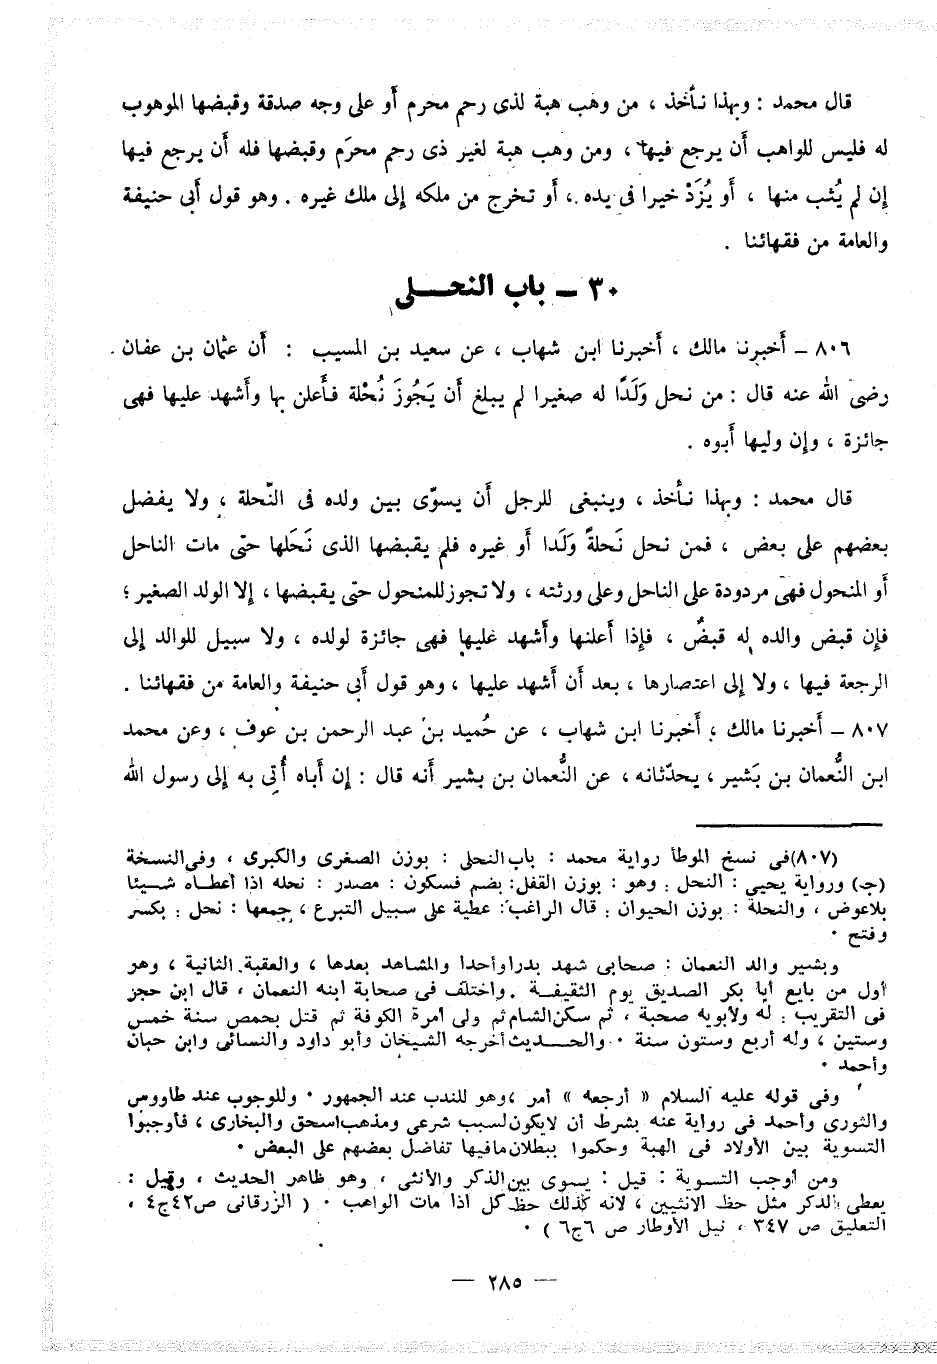 قال محمد : وبهذا نأخذ ، من وهب هبة لذى رحم محرم أو على وجه صدقة وقبضها الموهوب
له فليس للواهب أن يرجع فيها ، ومن وهب هبة لغير ذى رحم محرَم وقبضها فله أن يرجع فيها
إن لم يُثب منها ، أو يُزَدْ خيرا فى يده ، أو تخرج من ملكه إلى ملك غيره . وهو قول أبى حنيفة
والعامة من فقهائنا .
٣٠ – باب النحـــلى
٨٠٦ – أخبرنا مالك ، أخبرنا ابن شهاب ، عن سعيد بن المسيب : أن عثمان بن عفان
رضى الله عنه قال : من نحل وَلَدًا له صغيرا لم يبلغ أن يَجُوزَ نُحْلة فأعلن بها وأشهد عليها فهى
جائزة ، وإن وليها أبوه .
قال محمد : وبهذا نأخذ ، وينبغى للرجل أن يسوّى بين ولده فى النّحلة ، ولا يفضل
بعضهم على بعض ، فمن نحل نَحلةً وَلَدا أو غيره فلم يقبضها الذى نَحَلها حتى مات الناحل
أو المنحول فهى مردودة على الناحل وعلى ورثته ، ولا تجوز للمنحول حتى يقبضها ، إلا الولد الصغير ؛
فإن قبض والده له قبضٌ ، فإذا أعلنها وأشهد عليها فهى جائزة لولده ، ولا سبيل للوالد إلى
الرجعة فيها ، ولا إلى اعتصارها ، بعد أن أشهد عليها ، وهو قول أبى حنيفة والعامة من فقهائنا .
٨٠٧ – أخبرنا مالك ، أخبرنا ابن شهاب ، عن حُميد بن عبد الرحمن بن عوف ، وعن محمد
ابن النُّعمان بن بَشير ، يحدّثانه ، عن النُّعمان بن بشير أنه قال : إن أباه أُتى به إلى رسول الله
(٨٠٧) فى نسخ الموطأ رواية محمد : باب النحلى : بوزن الصغرى والكبرى ، وفى النسخة
(جـ) ورواية يحيى : النحل . وهو : بوزن القفل : بضم فسكون : مصدر : نحله اذا أعطـاه شـيئا
بلاعوض ، والنحلة : بوزن الحيوان . قال الراغب : عطية على سبيل التبرع ، جمعها : نحل . بكسر
وفتح .
وبشير والد النعمان : صحابى شهد بدرا وأحدا والمشاهد بعدها ، والعقبة الثانية ، وهو
أول من بايع أبا بكر الصديق يوم الثقيفـة . واختلف فى صحابة ابنه النعمان ، قال ابن حجر
فى التقريب : له ولأبويه صحبة ، ثم سكن الشام ثم ولى امرة الكوفة ثم قتل بحمص سنة خمس
وستين ، وله أربع وستون سنة . والحـديث أخرجه الشيخان وأبو داود والنسائى وابن حبان
وأحمد .
وفى قوله عليه السلام « أرجعه » أمر ، وهو للندب عند الجمهور . وللوجوب عند طاووس
والثورى وأحمد فى رواية عنه بشرط أن لايكون لسبب شرعى ومذهب اسحق والبخارى ، فأوجبوا
التسوية بين الأولاد فى الهبة وحكموا ببطلان مافيها تفاضل بعضهم على البعض .
ومن أوجب التسوية : قيل : يسوى بين الذكر والأنثى ، وهو ظاهر الحديث ، وقيل :
يعطى الذكر مثل حظ الانثيين ، لانه كذلك حظ كل اذا مات الواهب . ( الزرقانى ص٤٢ج٤ ،
التعليق ص ٣٤٧ ، نيل الأوطار ص ٦ج٦ ) .
— ٢٨٥ —